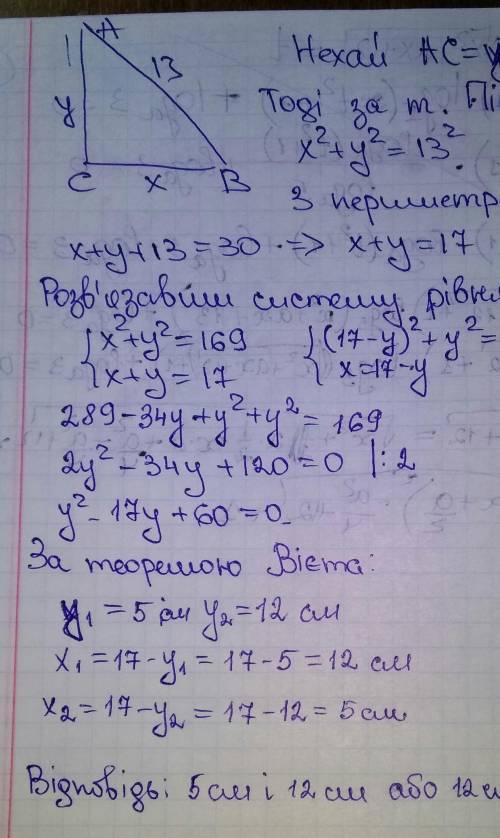 A
13
y
C x B
Нехай AC=y
Тоді за т.
x²+y²=13².
З периметр
x+y+13=30 => x+y=17
Розв'язавши систему рівн
{x²+y²=169 {(17-y)²+y²=
{x+y=17 {x=17-y
289-34y+y²+y²=169
2y²-34y+120=0 |:2
y²-17y+60=0
За теоремою Вієта:
y₁=5 см y₂=12 см
x₁=17-y₁=17-5=12 см
x₂=17-y₂=17-12=5см
Відповідь: 5см і 12см або 12